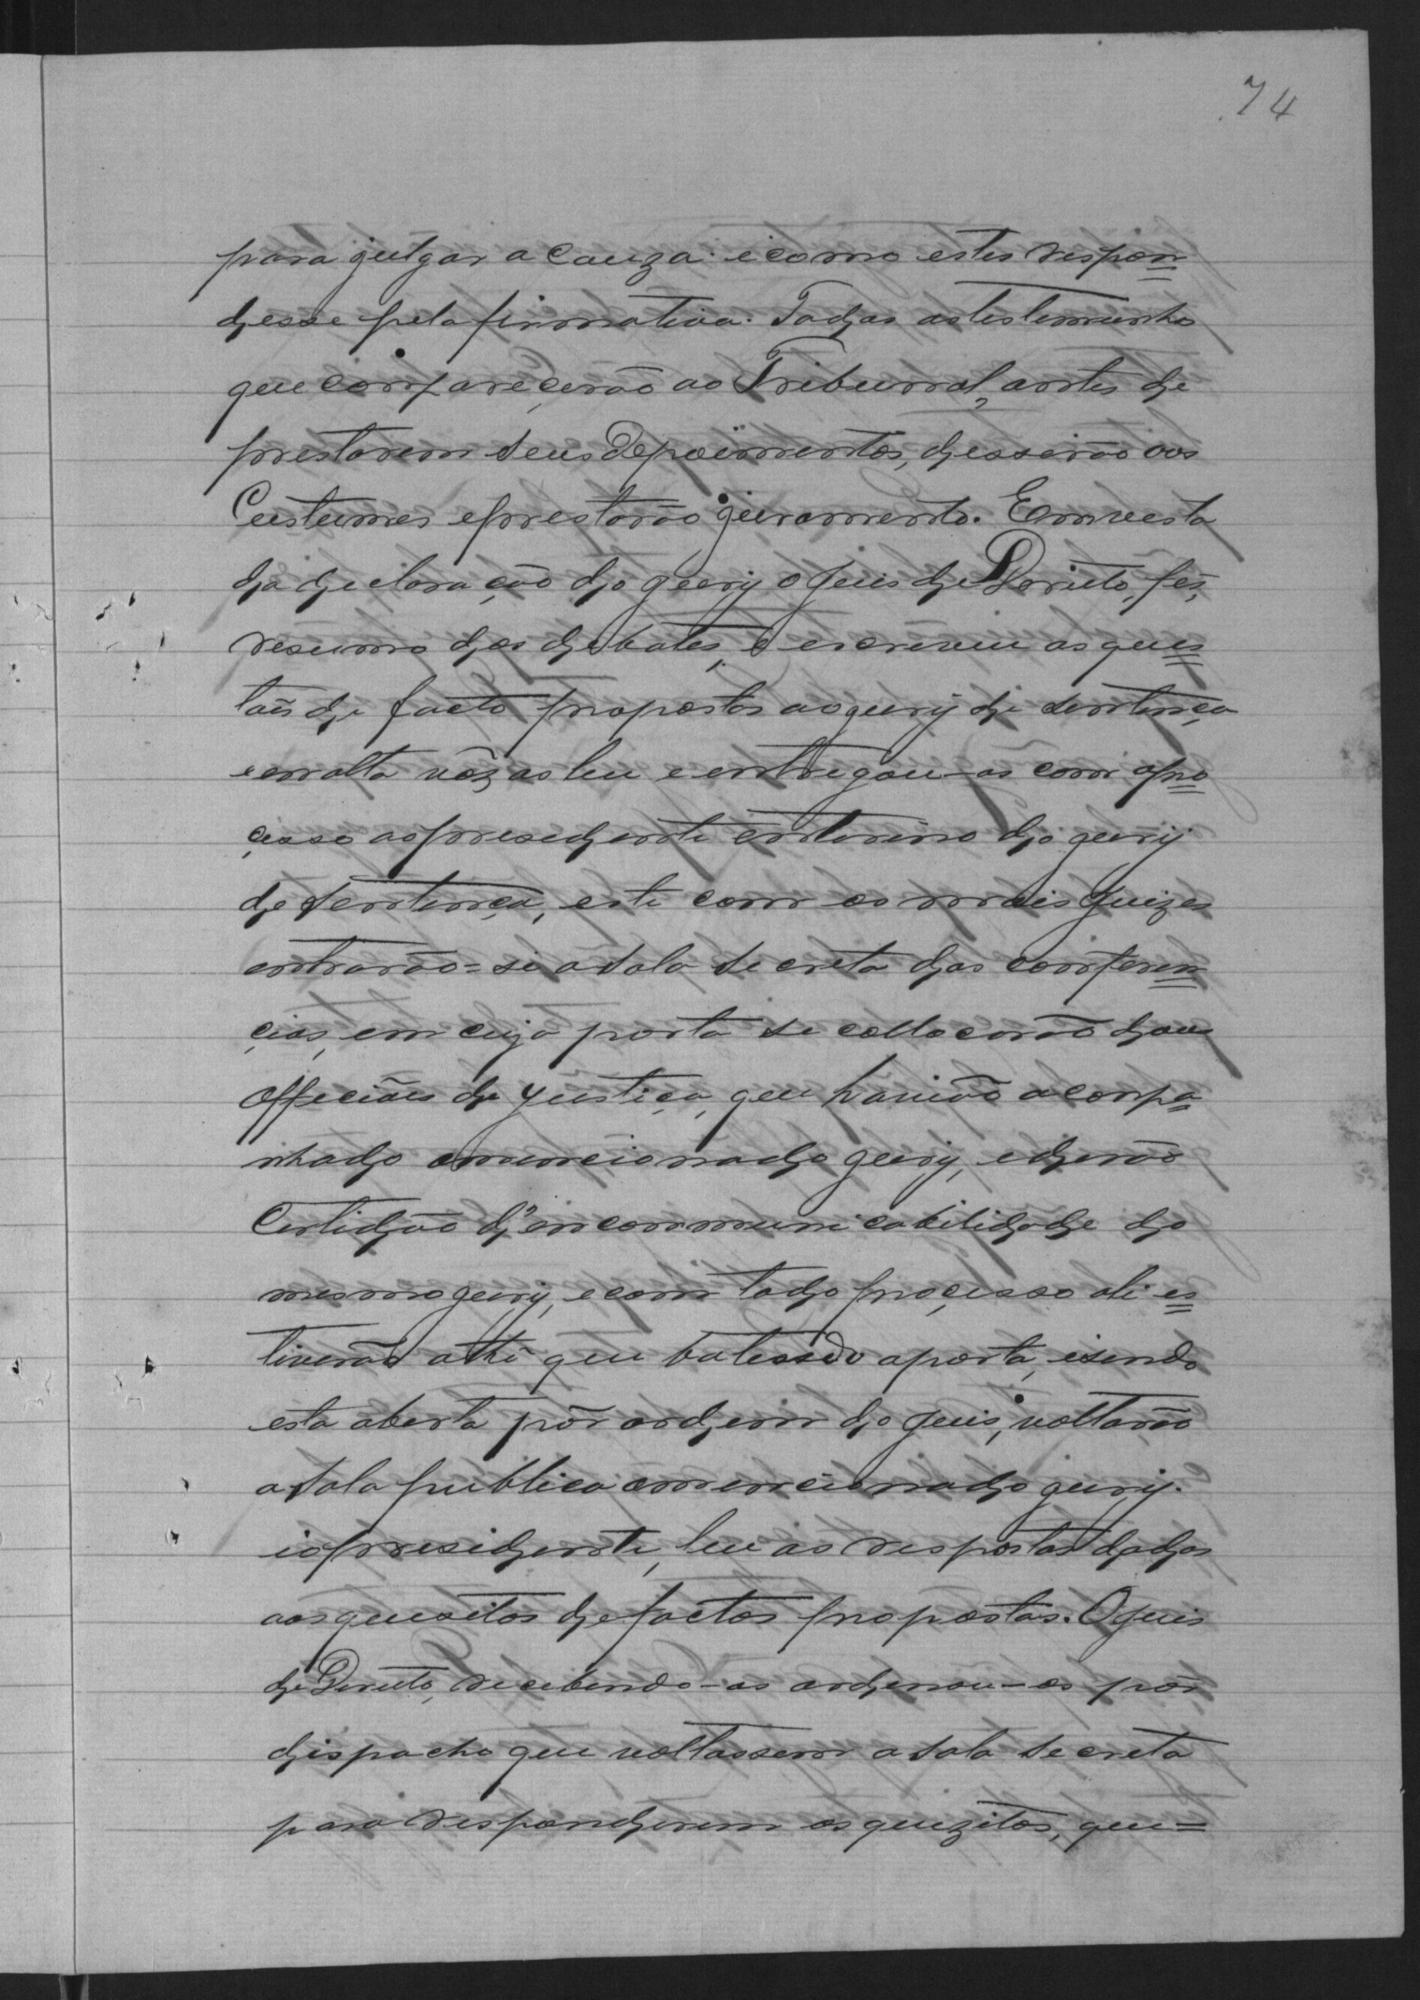 74
para julgar a cauza: e como estes respon=
desse pela firmativa. Todas astestemunhas
que comparecerão ao Tribunal, antes de
prestarem seus Depoimentos, disserão aos
Custumes eprestarão juramento. Emvesta
da declaração do jury o Juis de Direito, fes,
resumo dos debates, e escreviu as ques=
tões de facto propostas aojury de sentença
e em alta vóz as leu e entregou-as com opro=
cesso aopresedente enterino do jury
de Sentença, este com os mais Juizes
entrarão=se a Sala Secreta das conferen=
cias, em cuja porta se collocarão dous
officiães de justiça, que havião acompa=
nhado omencionado jury, ederão
Certidão d'encommunicabilidade do
mesmo jury, e com todo processo ali es=
tiverão athé que batessdo aporta, esendo
esta aberta pôr ordem do Juis, voltarão
a Sala publica omencionado jury.
io presidente, leu as respostas dadas
aosquesitos de factos propostos. O Juis
de Direito, recebendo-as ordenou-os por
dispacho que voltassem a Sala Secreta
para respanderem os quizitos, que=